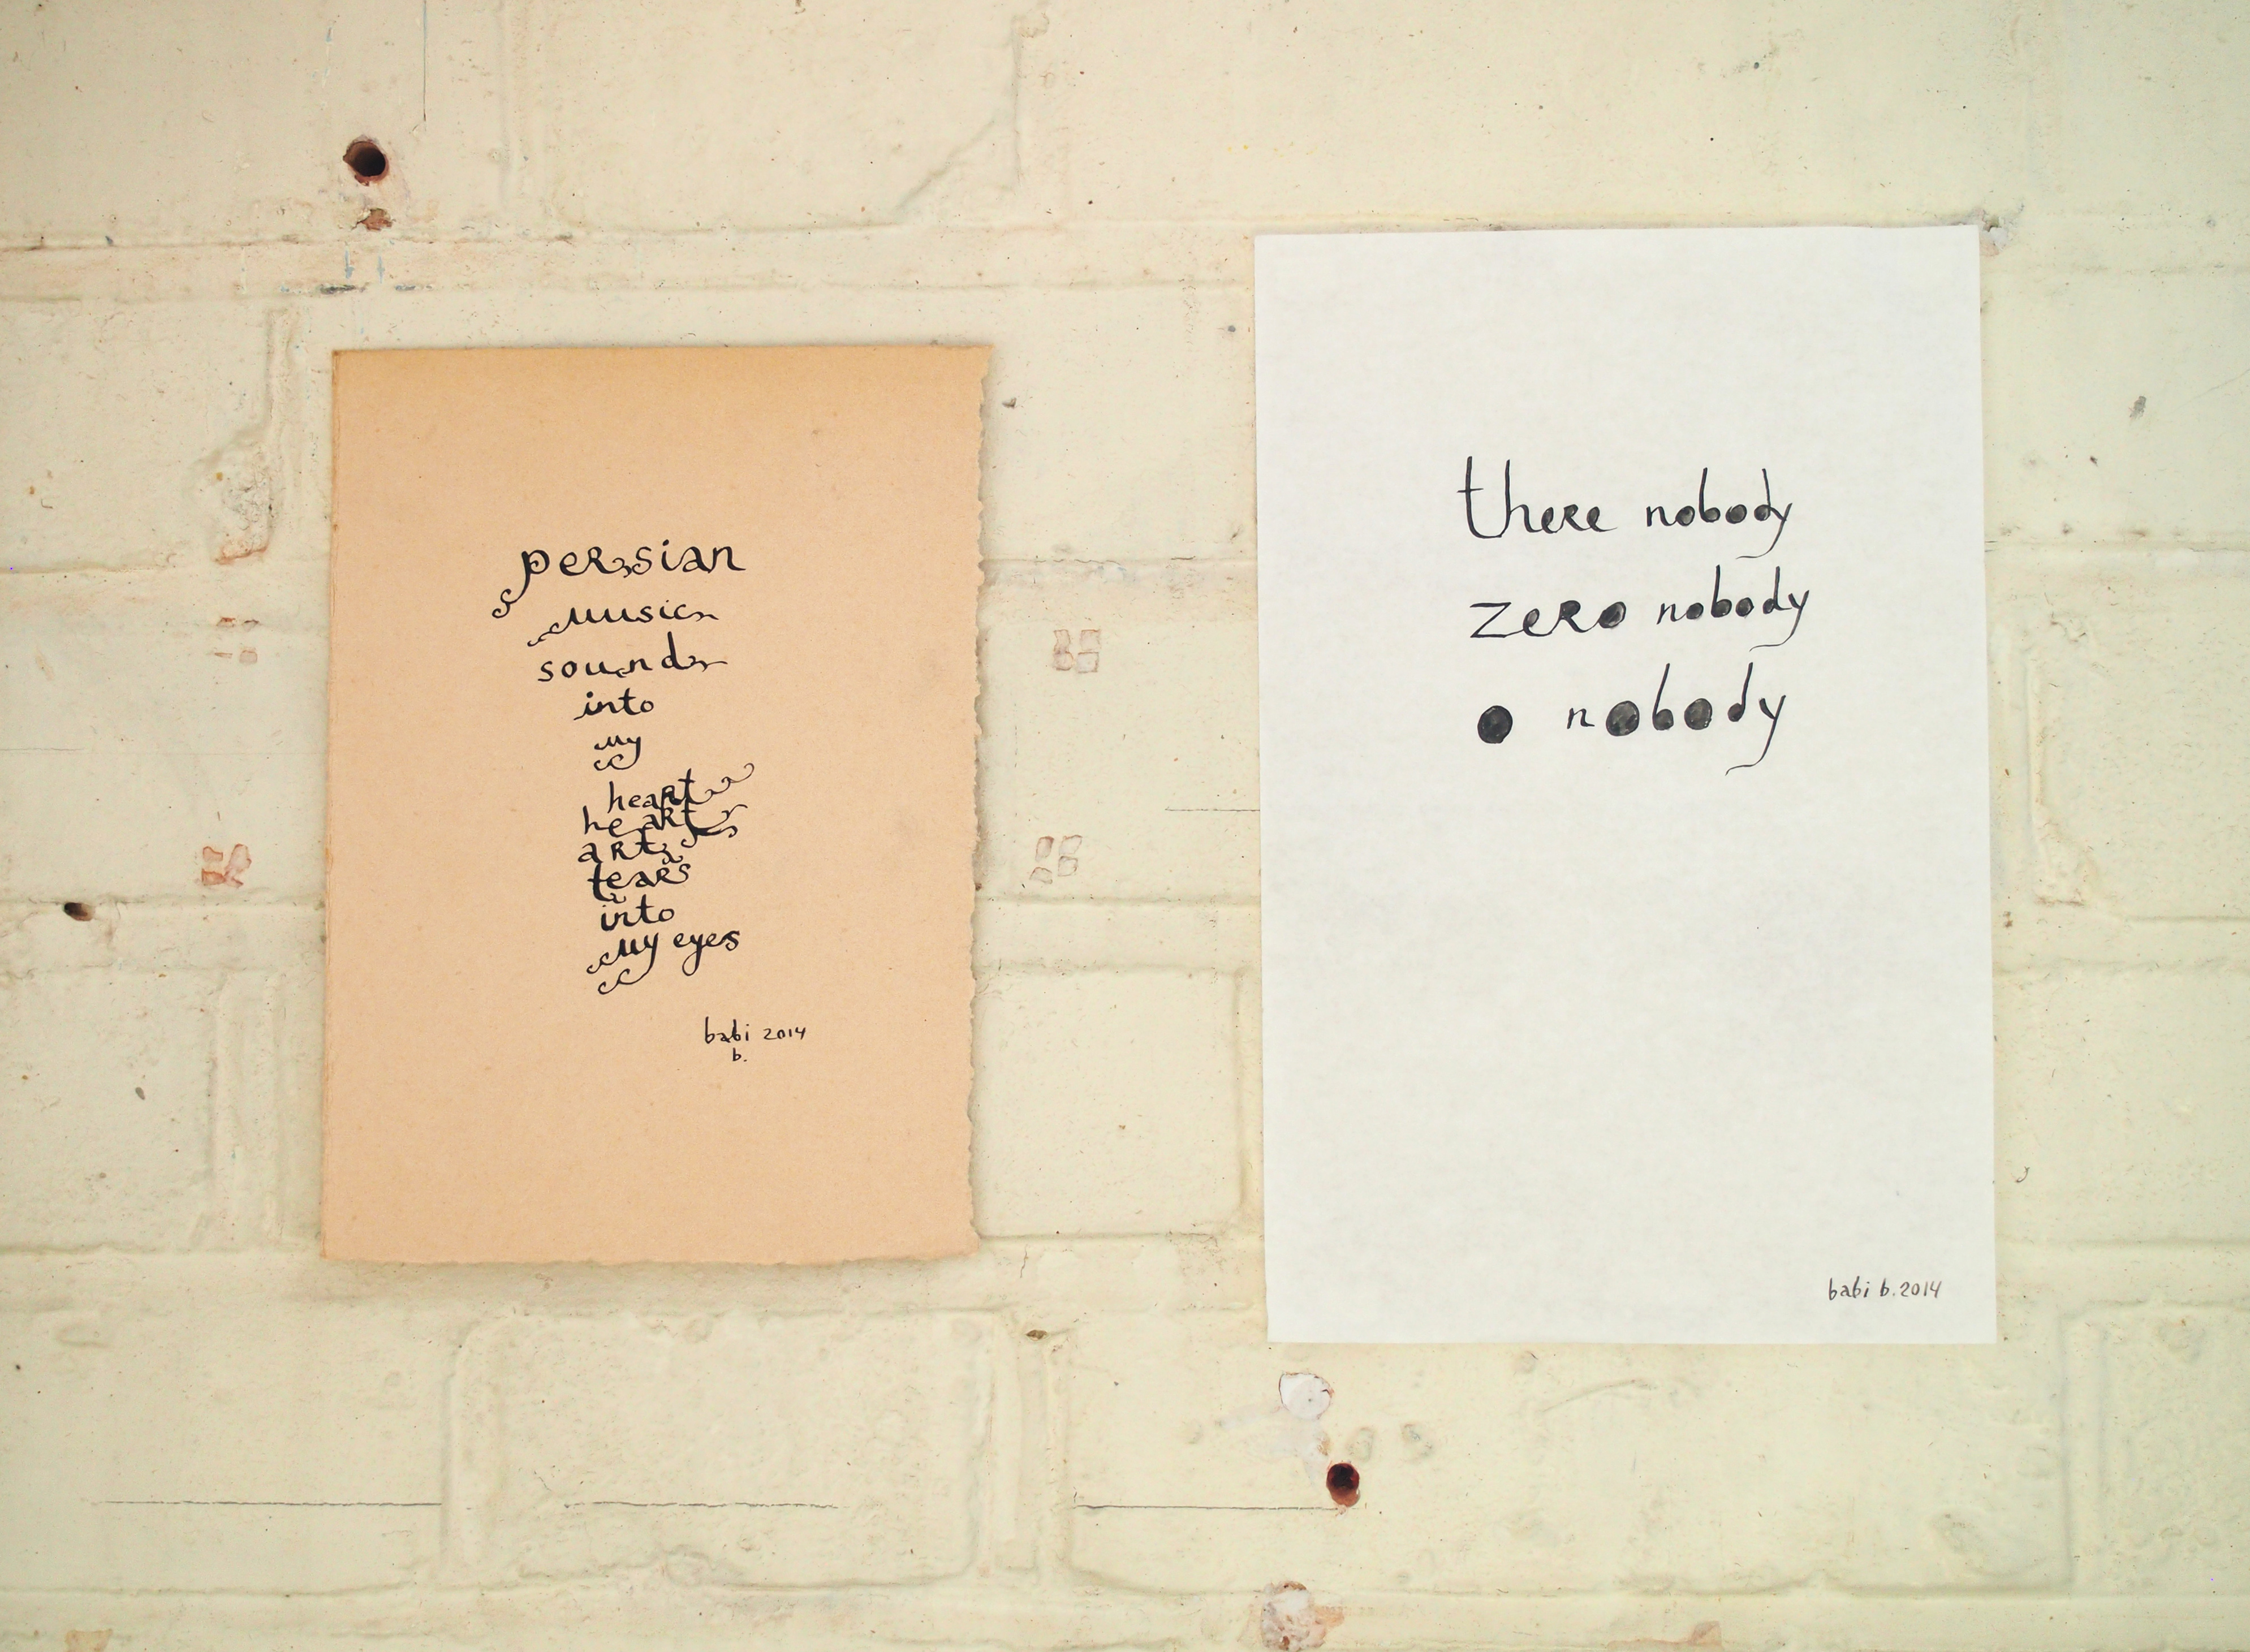 persian
music
sounds
into
my
heart
heart
art
tears
into
my eyes
babi 2014
b.
there nobody
zero nobody
o nobody
babi b. 2014